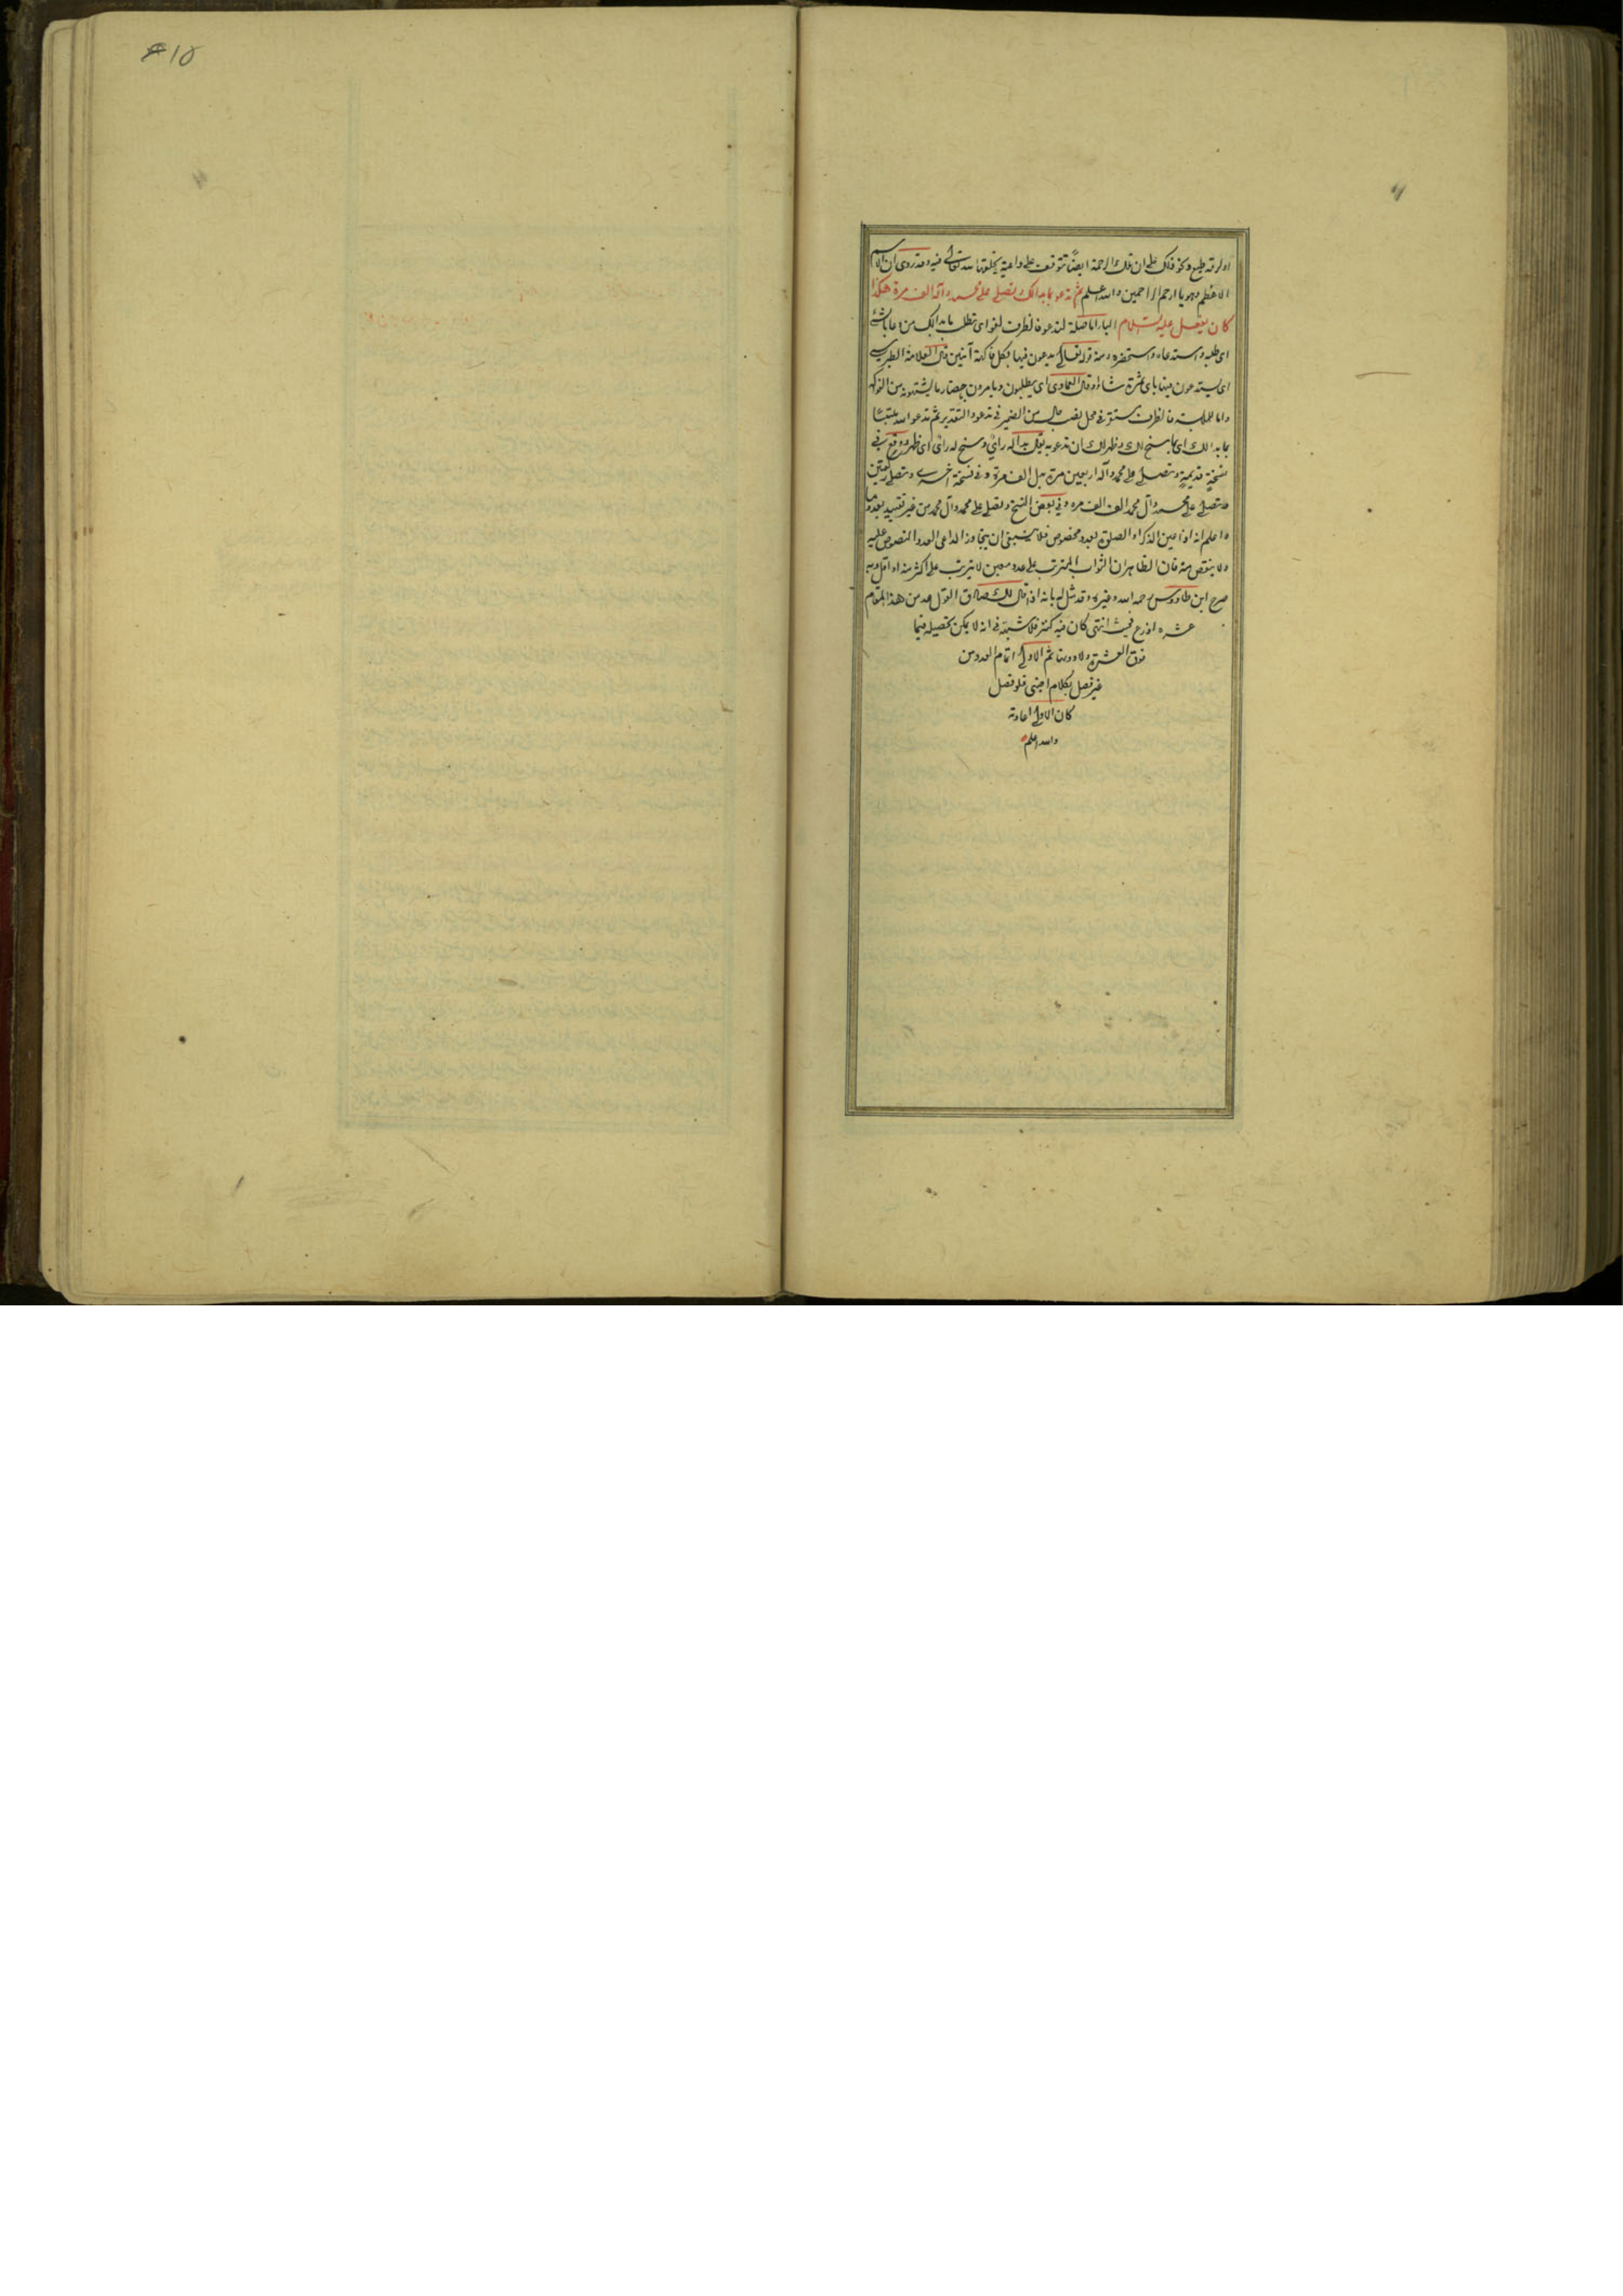 او لرقة طبع ونحو ذلك على ان تلك الرحمة ايضًا تتوقف على داعية يخلقها الله تعالى فيه وقد روى ان الاسم
الاعظم وهو يا ارحم الراحمين والله اعلم ثم تدعو بما بدا لك وتصلى على محمد وآله الف مرة هكذا
كان يفعل عليه السلام الباء اما صلة لتدعو فالظرف لغو اى تطلب ما بدا لك من دعا بالشئ
اى طلبه واستدعاه واستحضره ومنه قوله تعالى يدعون فيها بكل فاكهة آمنين قال العلامة الطبرسى
اى يستدعون فيها باى ثمرة شاؤا وقال العمادى اى يطلبون ويامرون باحضار ما يشتهونه من الفواكه
واما للملابسة فالظرف مستقر فى محل نصب حال من الضمير فى تدعو والتقدير ثم تدعو الله ملتبسًا
بما بدا لك اى بما سنح لك وظهر لك ان تدعو به يقال بدا له رأى وسنح له رأى اى ظهر ووقع فى
نسخة قديمة وتصلى على محمد وآله اربعين مرة بدل الف مرة وفى نسخة اخرى وتصلى ركعتين
وتصلى على محمد وآل محمد الف الف مرة وفى بعض النسخ وتصلى على محمد وآل محمد من غير تقييد بعدد ما
واعلم انه اذا عين الذكر او الصلوة بعدد مخصوص فلا ينبغى ان يتجاوز الداعى العدد المنصوص عليه
ولا ينقص منه فان الظاهر ان الثواب المترتب على عدد معين لا يترتب على اكثر منه او اقل وبه
صرح ابن طاووس رحمه الله وغيره وقد مثل له بانه اذا قال لك صادق القول عد من هذا المقام
عشرة اذرع فحيث انتهى كان فيه كنز فلا شبهة فى انه لا يمكن تحصيله فيما
فوق العشرة ولا دونها ثم الاولى اتمام العدد من
غير فصل بكلام اجنبى فلو فصل
كان الاولى اعادته
والله اعلم